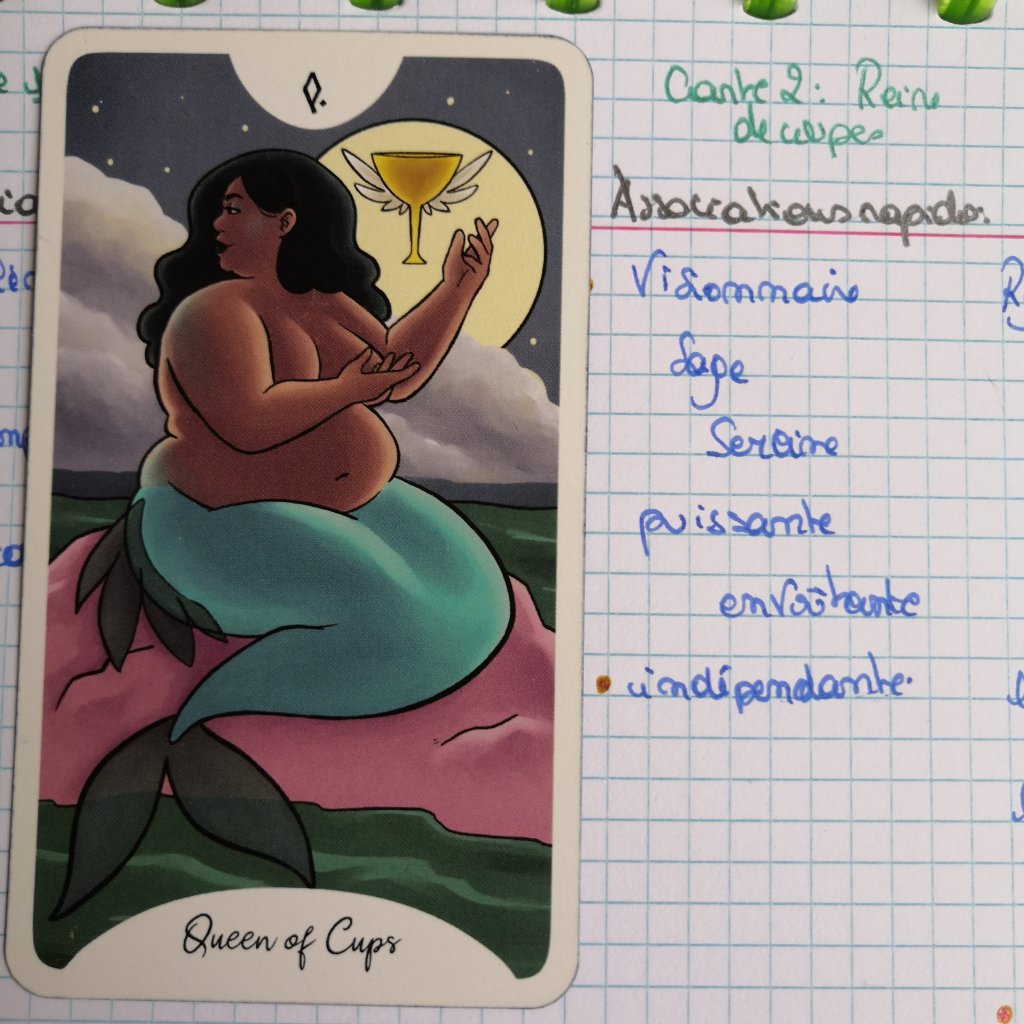 Q.
Queen of Cups
Carte 2: Reine
de coupe
Associations rapides.
Visionnaire
Sage
Sereine
puissante
envoûtante
indépendante.